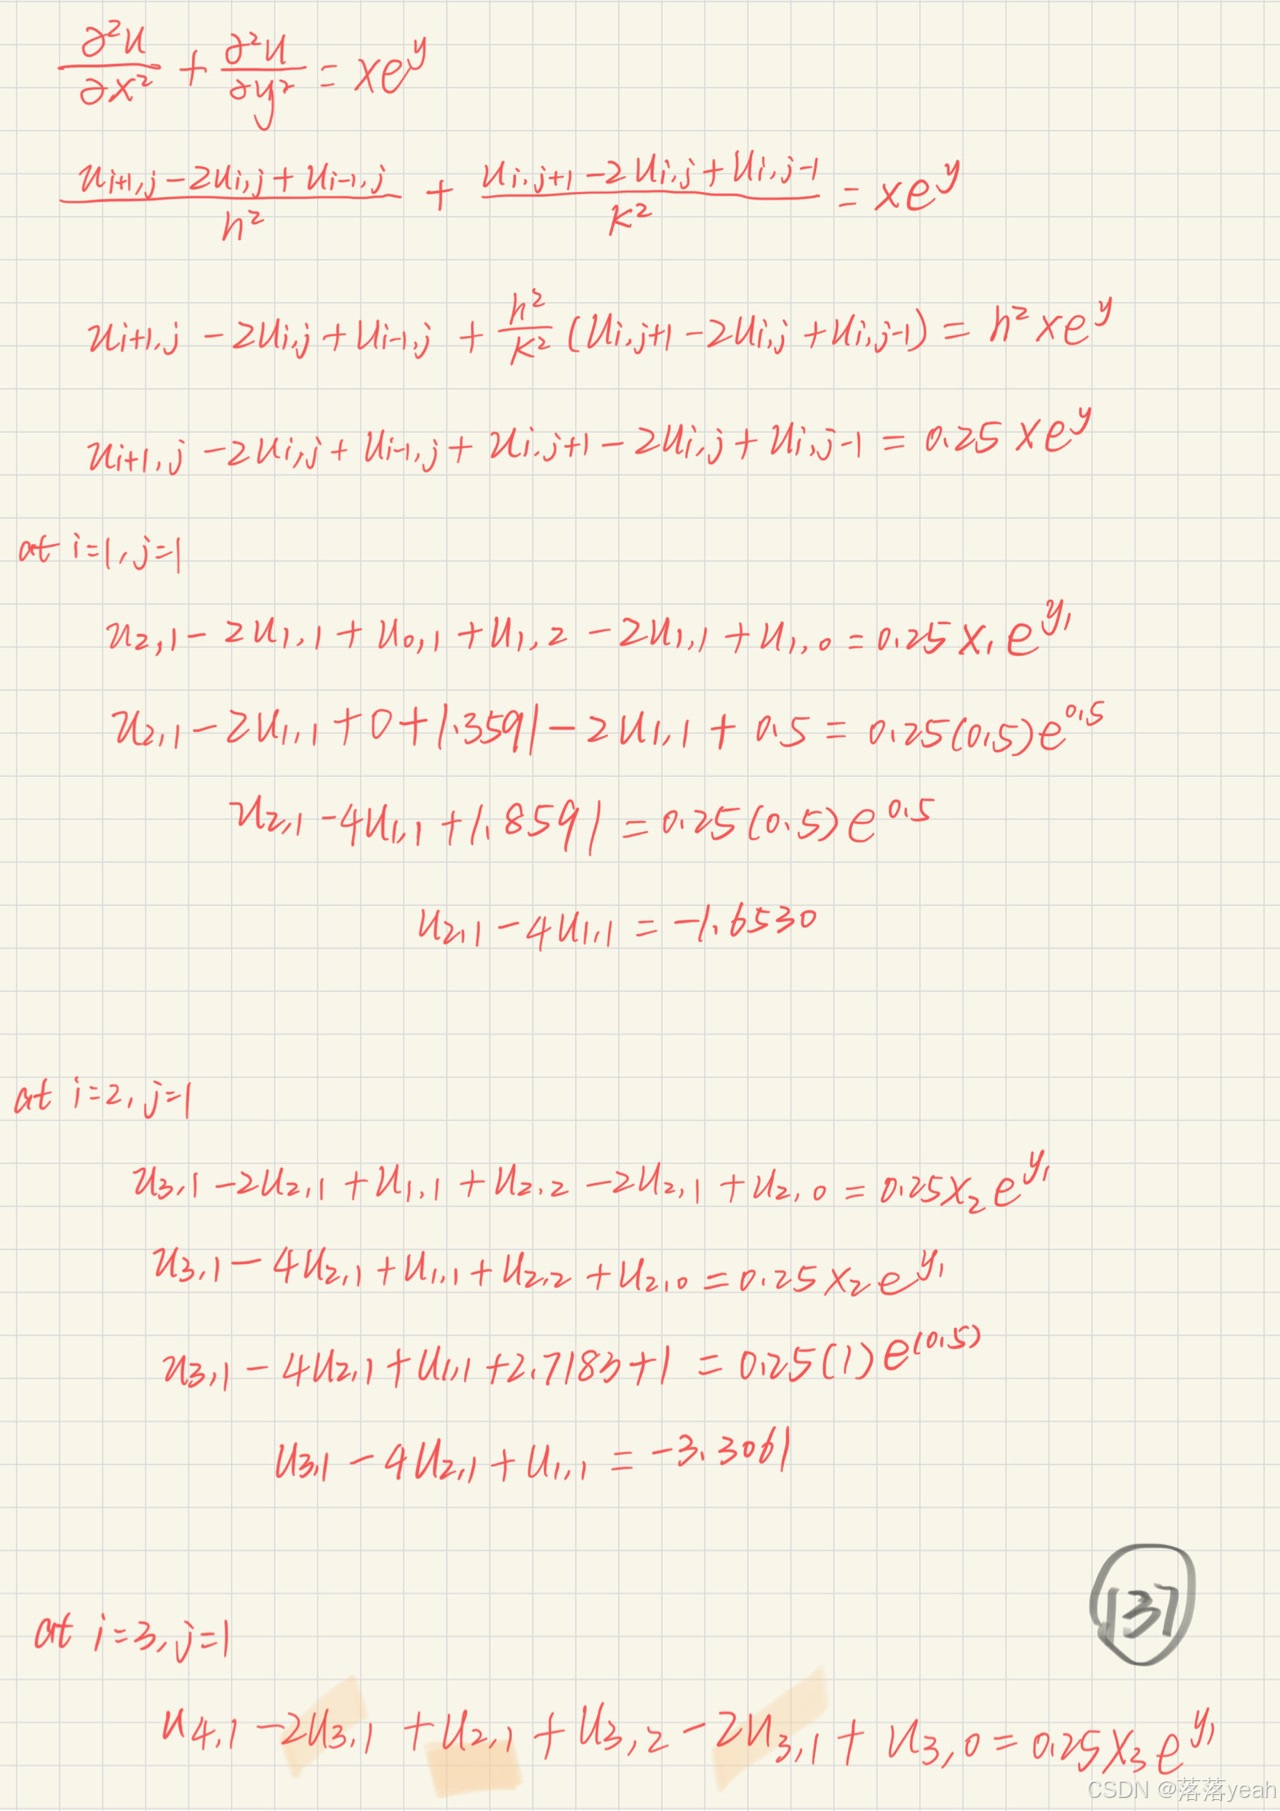 ∂²u/∂x² + ∂²u/∂y² = xe^y
(u_{i+1,j} - 2u_{i,j} + u_{i-1,j})/h² + (u_{i,j+1} - 2u_{i,j} + u_{i,j-1})/k² = xe^y
u_{i+1,j} - 2u_{i,j} + u_{i-1,j} + h²/k² (u_{i,j+1} - 2u_{i,j} + u_{i,j-1}) = h²xe^y
u_{i+1,j} - 2u_{i,j} + u_{i-1,j} + u_{i,j+1} - 2u_{i,j} + u_{i,j-1} = 0.25 xe^y
at i=1, j=1
u_{2,1} - 2u_{1,1} + u_{0,1} + u_{1,2} - 2u_{1,1} + u_{1,0} = 0.25 x_1 e^{y_1}
u_{2,1} - 2u_{1,1} + 0 + 1.3591 - 2u_{1,1} + 0.5 = 0.25(0.5)e^{0.5}
u_{2,1} - 4u_{1,1} + 1.8591 = 0.25(0.5)e^{0.5}
u_{2,1} - 4u_{1,1} = -1.6530
at i=2, j=1
u_{3,1} - 2u_{2,1} + u_{1,1} + u_{2,2} - 2u_{2,1} + u_{2,0} = 0.25x_2 e^{y_1}
u_{3,1} - 4u_{2,1} + u_{1,1} + u_{2,2} + u_{2,0} = 0.25 x_2 e^{y_1}
u_{3,1} - 4u_{2,1} + u_{1,1} + 2.7183 + 1 = 0.25(1)e^{(0.5)}
u_{3,1} - 4u_{2,1} + u_{1,1} = -3.3061
137
at i=3, j=1
u_{4,1} - 2u_{3,1} + u_{2,1} + u_{3,2} - 2u_{3,1} + u_{3,0} = 0.25x_3 e^{y_1}
CSDN @落落yeah